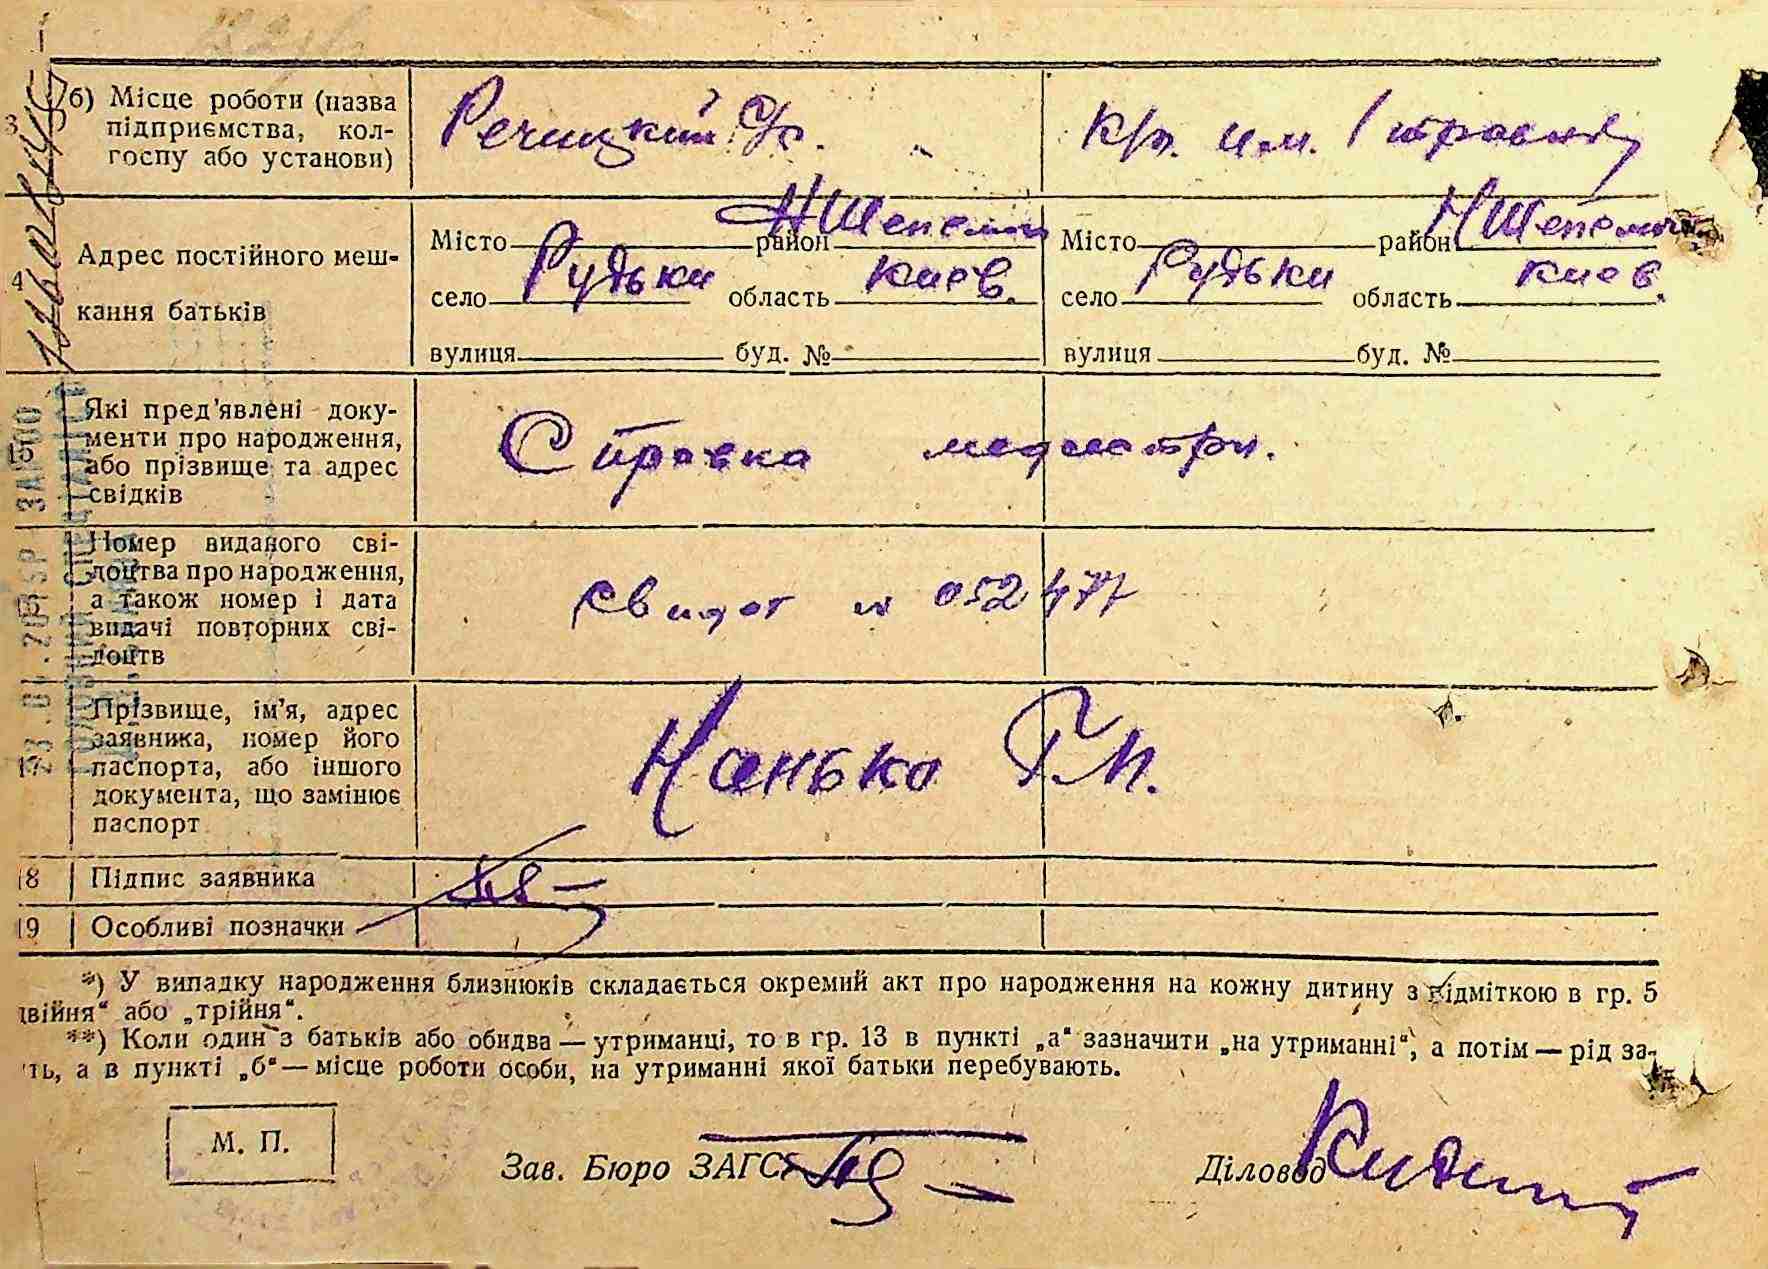 б) Місце роботи (назва
підприємства, кол-
госпу або установи)
Речицкий С/с.
К/п. им. 1 травня
4
Адрес постійного меш-
кання батьків
Місто район НШепели
село Рудьки область Киев.
вулиця буд. №
Місто район НШепели
село Рудьки область Киев.
вулиця буд. №
15
Які пред'явлені доку-
менти про народження,
або прізвище та адрес
свідків
Справка медсестри.
Номер виданого сві-
доцтва про народження,
а також номер і дата
видачі повторних сві-
доцтв
Свидот № 052477
17
Прізвище, ім'я, адрес
заявника, номер його
паспорта, або іншого
документа, що замінює
паспорт
Нанько Г.П.
18 Підпис заявника
19 Особливі позначки
*) У випадку народження близнюків складається окремий акт про народження на кожну дитину з відміткою в гр. 5
двійня" або „трійня".
**) Коли один з батьків або обидва — утриманці, то в гр. 13 в пункті „а" зазначити „на утриманні", а потім — рід за-
ть, а в пункті „б" — місце роботи особи, на утриманні якої батьки перебувають.
М. П.
Зав. Бюро ЗАГС
Діловод